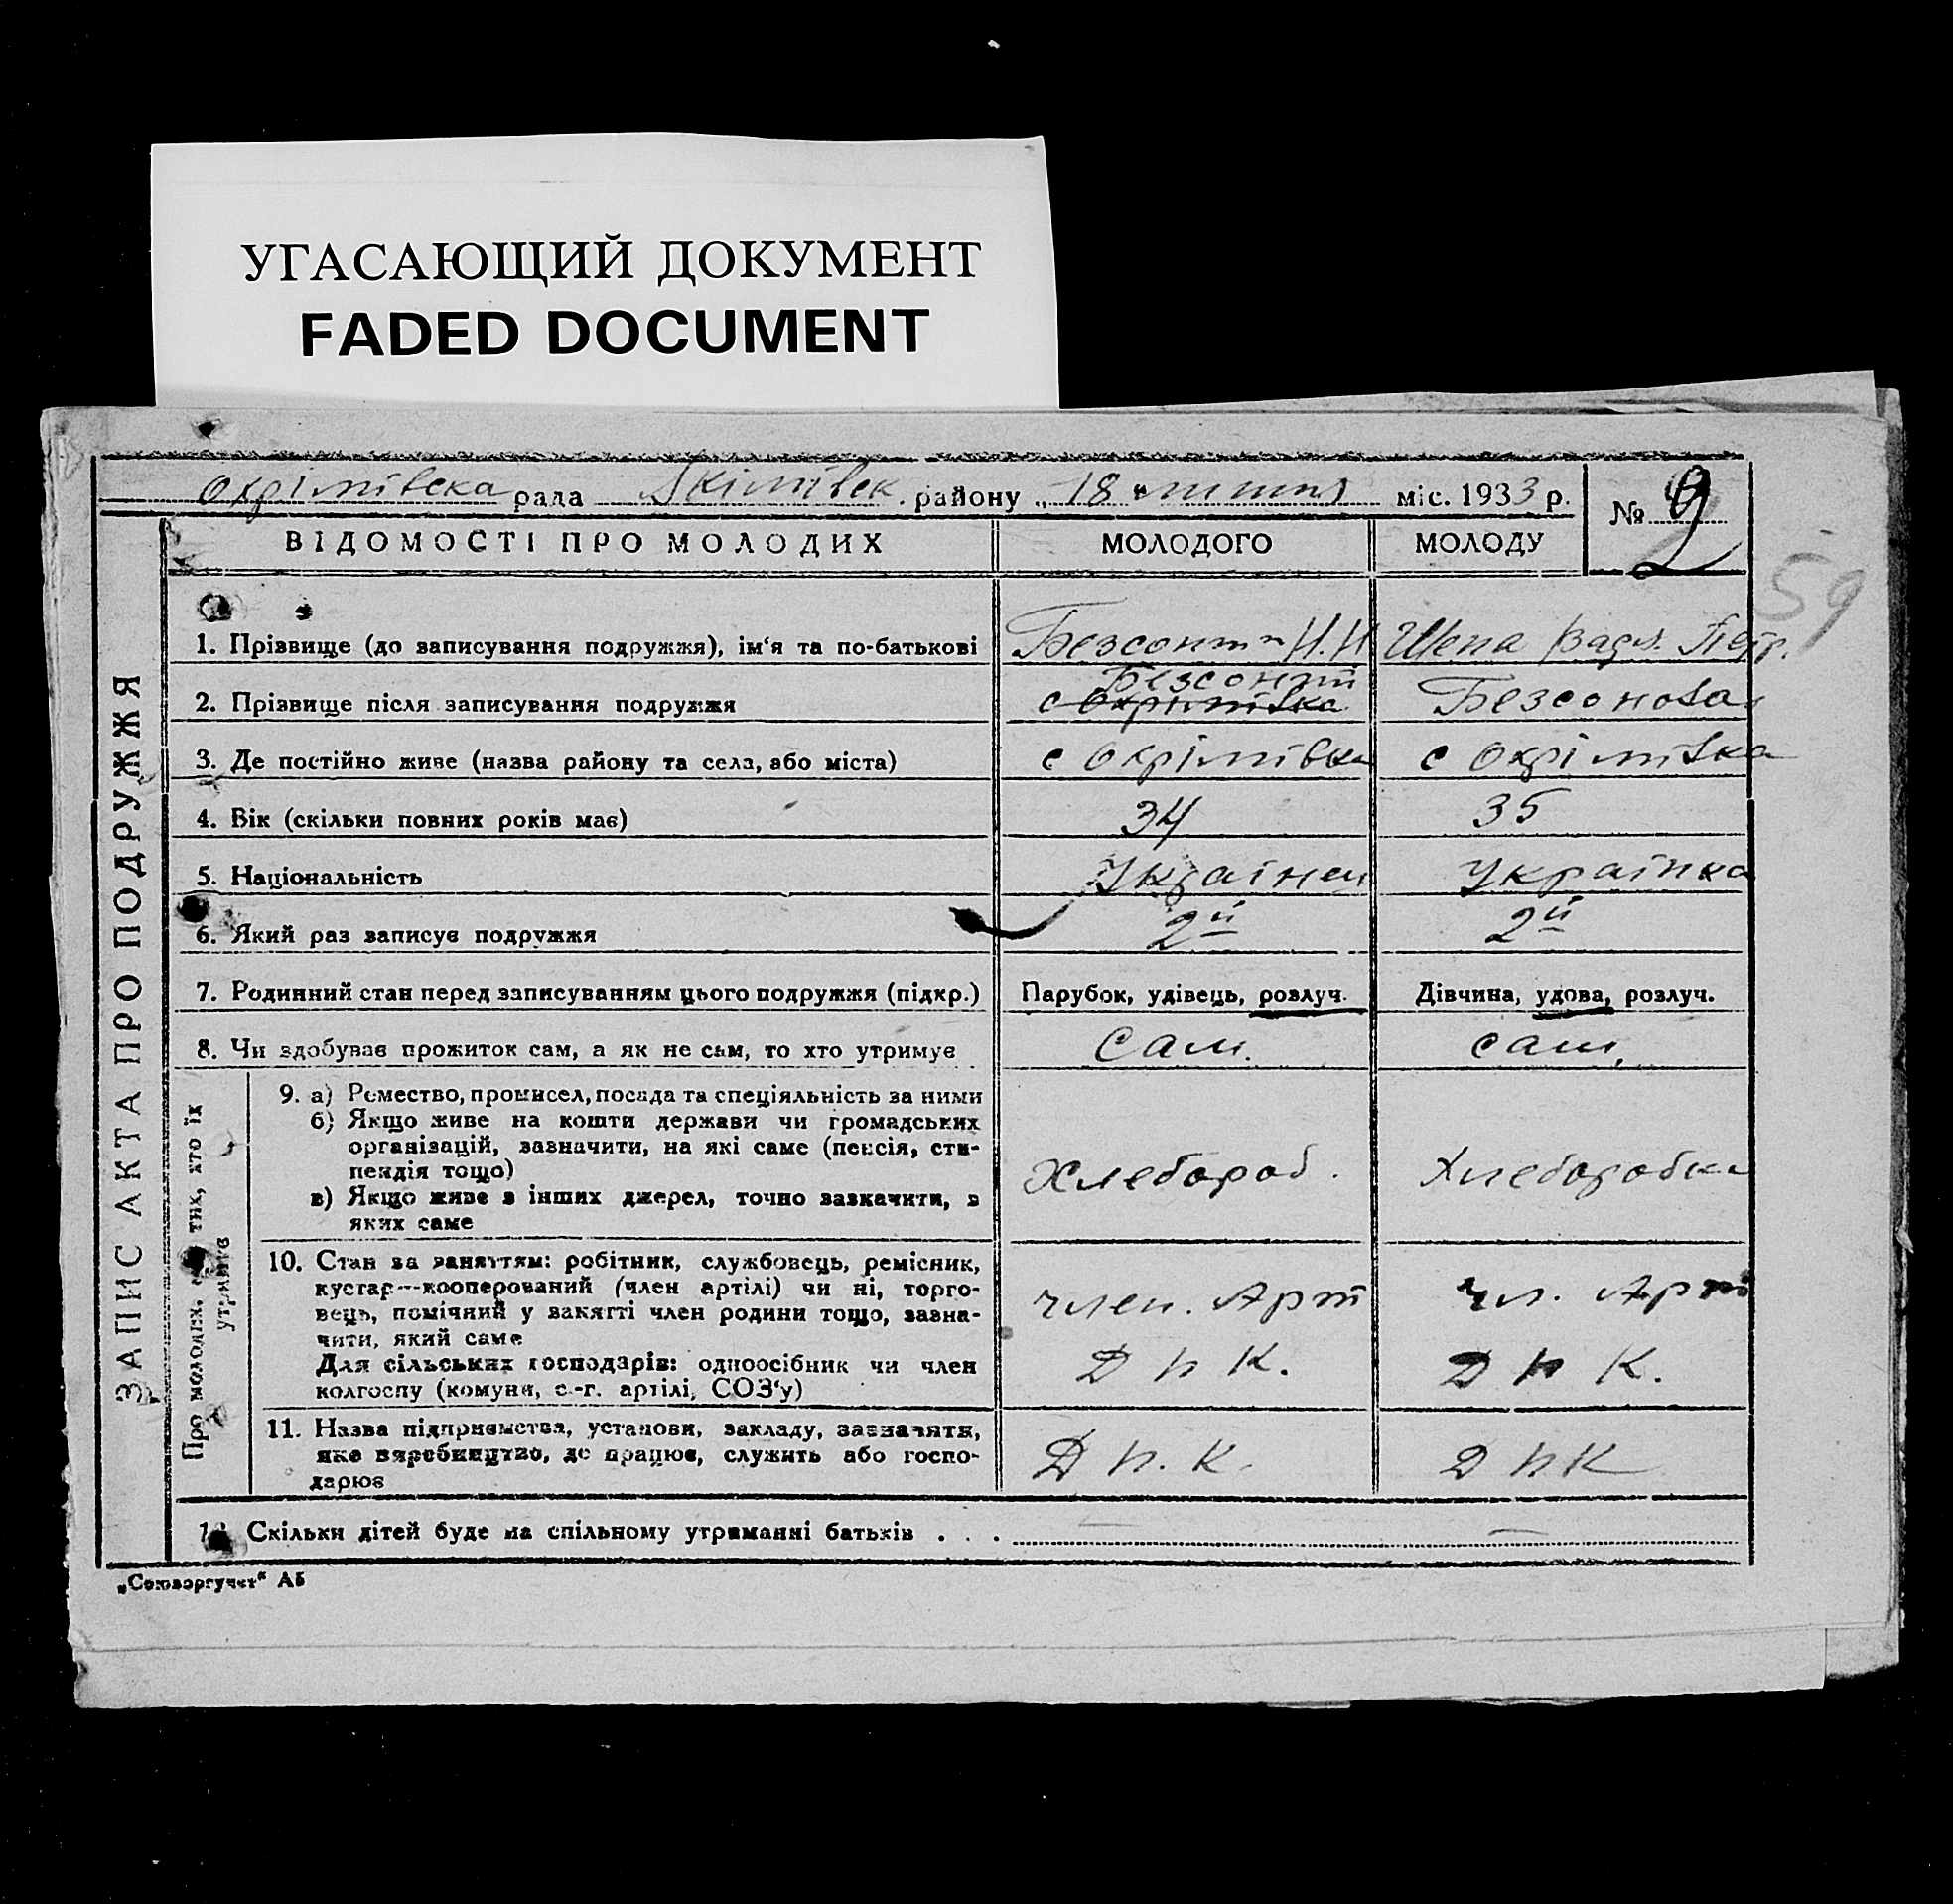 УГАСАЮЩИЙ ДОКУМЕНТ
FADED DOCUMENT
Охрімівська рада Якімівськ. району „18“ міс. 1933 р.
№ 9
59
ЗАПИС АКТА ПРО ПОДРУЖЖЯ
ВІДОМОСТІ ПРО МОЛОДИХ МОЛОДОГО МОЛОДУ
1. Прізвище (до записування подружжя), ім‘я та по-батькові Шепа Петр.
2. Прізвище після записування подружжя с Охрімівка Безсонова
3. Де постійно живе (назва району та села, або міста) с Охрімівка с Охрімівка
4. Вік (скільки повних років має) 34 35
5. Національність Українец Українка
6. Який раз записує подружжя 2й 2й
7. Родинний стан перед записуванням цього подружжя (підкр.) Парубок, удівець, розлуч. Дівчина, удова, розлуч.
8. Чи здобував прожиток сам, а як не сам, то хто утримує Сам. сам.
Про молодих, тих, хто їх утримує
9. а) Ремество, промисел, посада та спеціяльність за ними
б) Якщо живе на кошти держави чи громадських
організацій, зазначити, на які саме (пенсія, сти-
пендія тощо) Хлебороб. Хлеборобка
в) Якщо живе з інших джерел, точно зазначити, з
яких саме
10. Стан за заняттям: робітник, службовець, ремісник,
кустар—кооперований (член артілі) чи ні, торго- член. Арт чл. Арт
вець, помічний у занятті член родини тощо, зазна-
чити, який саме
Для сільських господарів: одноосібник чи член Д П К. Д П К.
колгоспу (комуни, с.-г. артілі, СОЗ‘у)
11. Назва підприємства, установи, закладу, зазначити,
яке виробництво, де працює, служить або госпо- Д П. К. Д П К
дарює
Скільки дітей буде на спільному утриманні батьків . . . — —
„Союзоргучет“ АБ